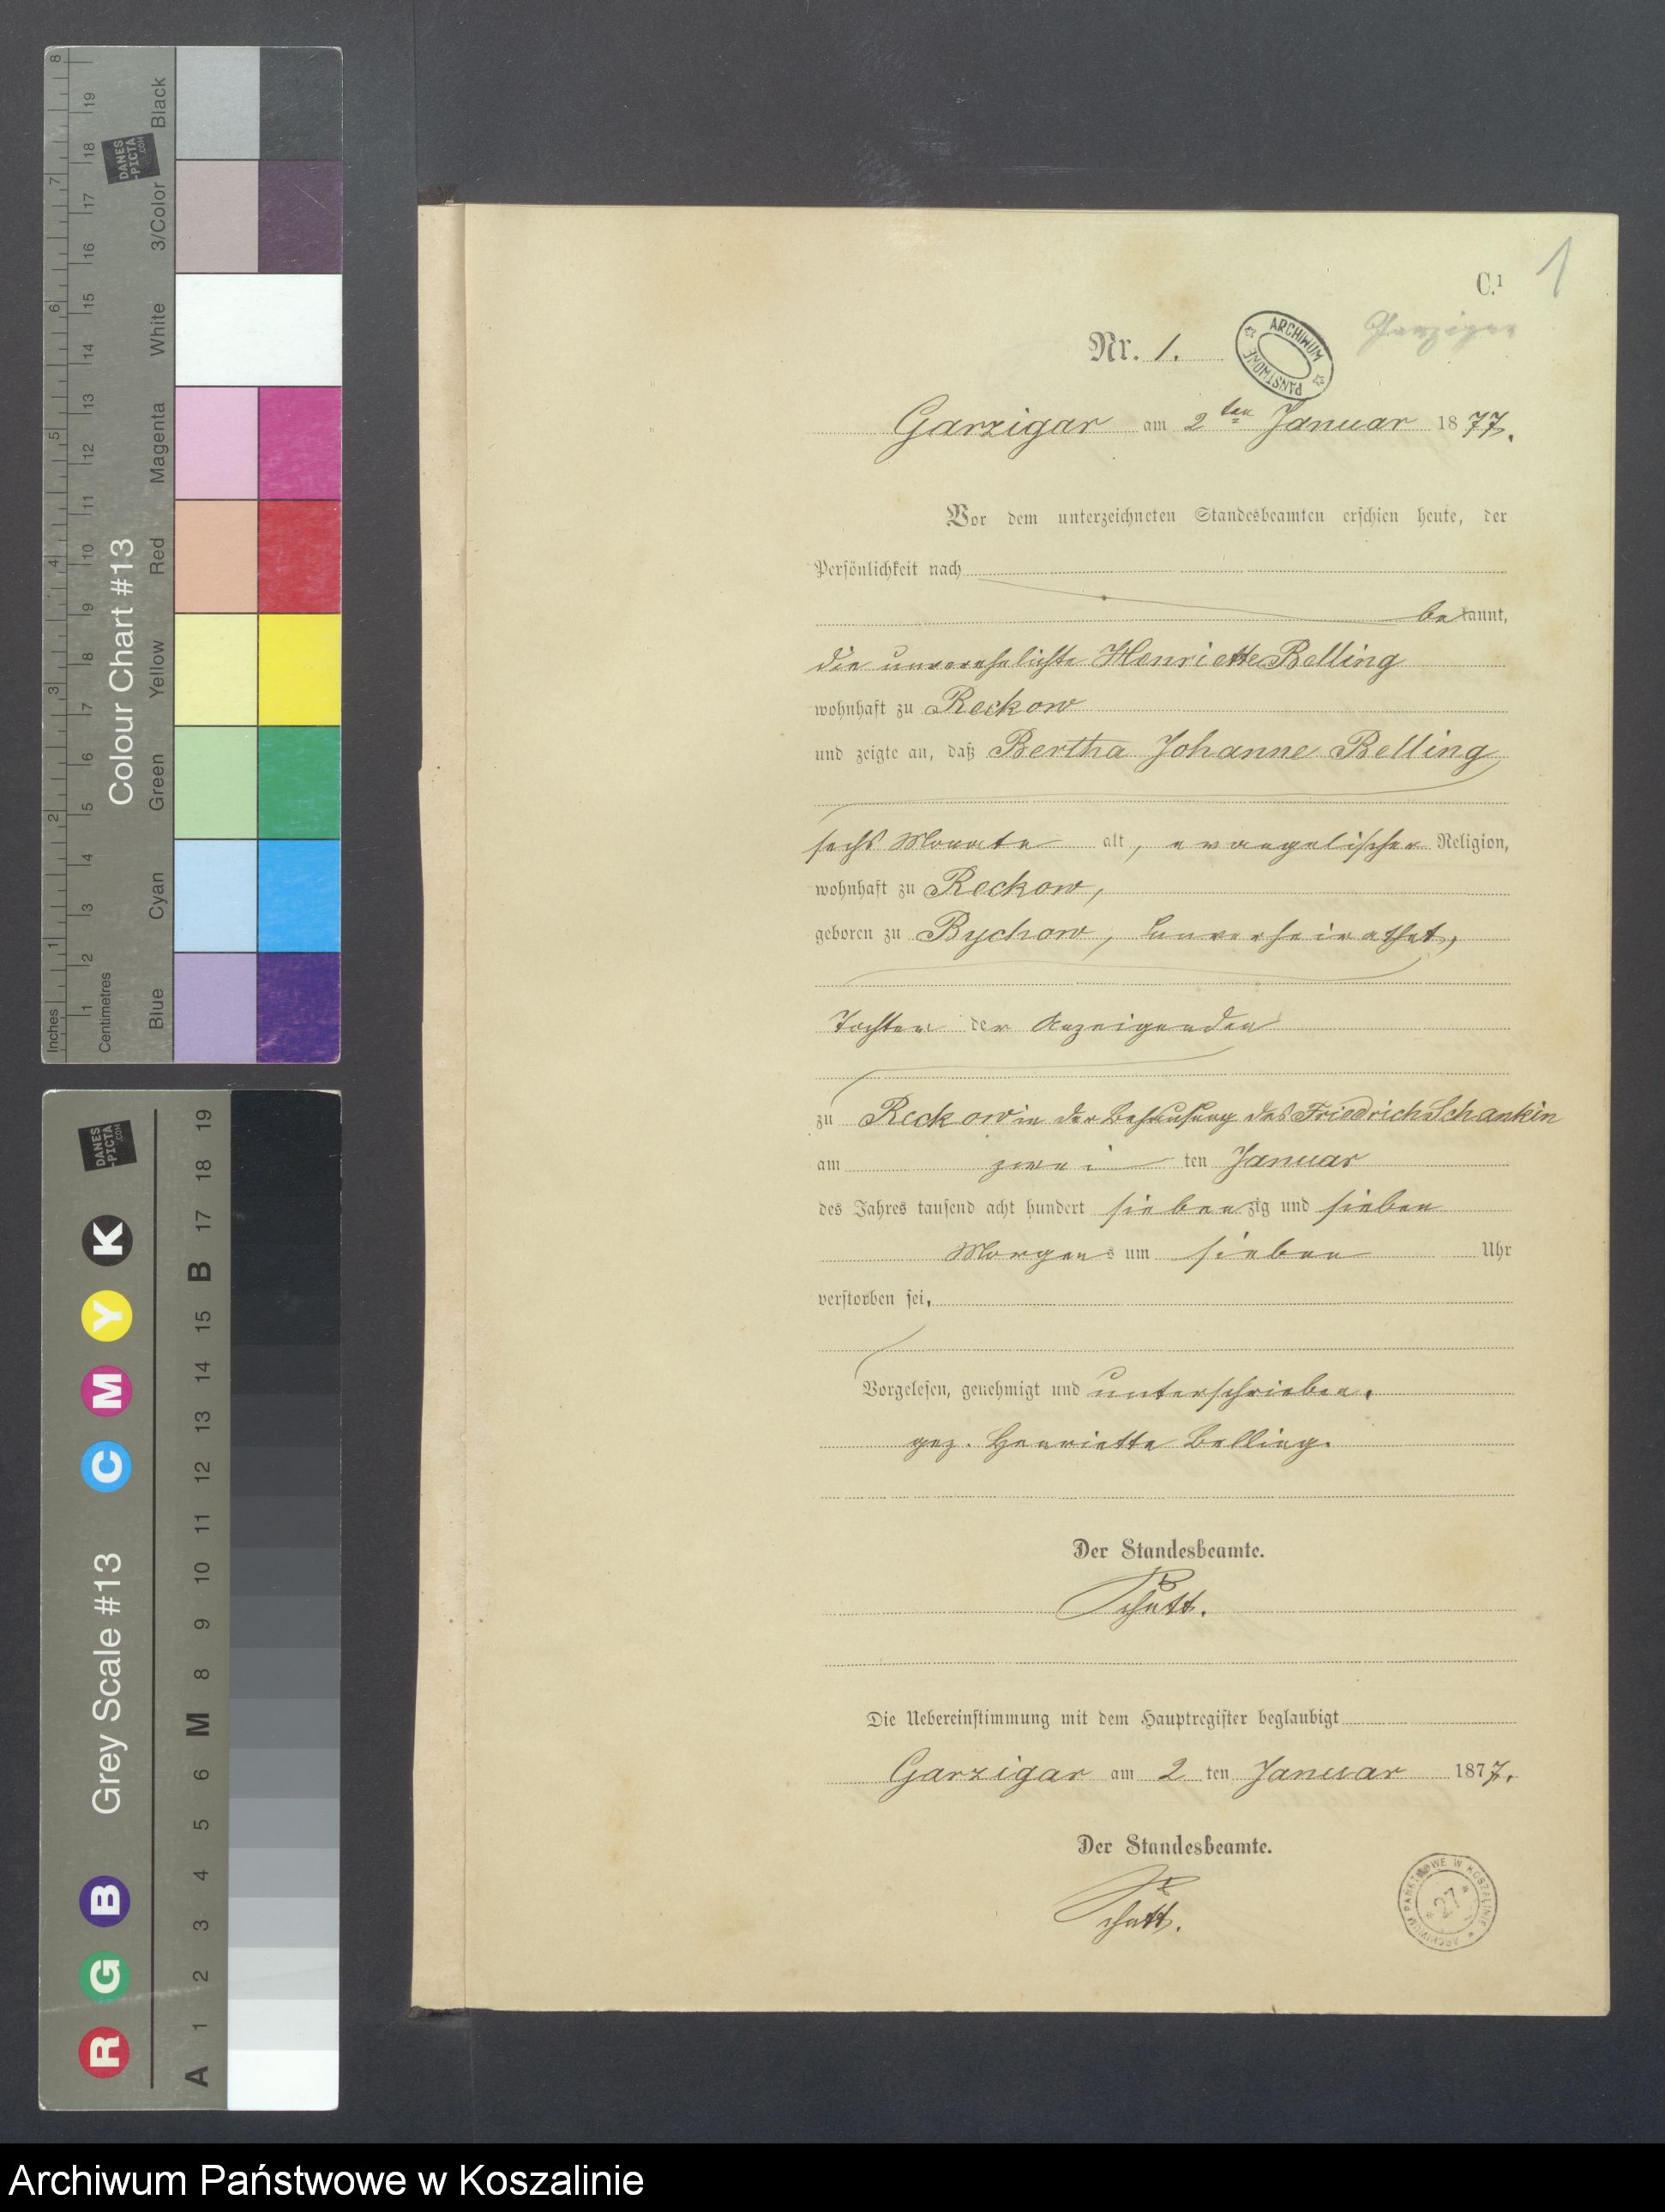 C.¹ 1
Garzigar
Nr. 1.
ARCHIWUM PAŃSTWOWE
Garzigar am 2ten Januar 1877.
Vor dem unterzeichneten Standesbeamten erschien heute, der
Persönlichkeit nach
bekannt,
die unverehelichte Henriette Belling
wohnhaft zu Reckow
und zeigte an, daß Bertha Johanne Belling
sechs Monate alt, evangelischer Religion,
wohnhaft zu Reckow,
geboren zu Bychow, unverheirathet,
Tochter der Anzeigenden
zu Reckow in der Behausung des Friedrich Schankin
am zwei ten Januar
des Jahres tausend acht hundert siebenzig und sieben
Morgens um sieben Uhr
verstorben sei,
Vorgelesen, genehmigt und unterschrieben.
gez. Henriette Belling.
Der Standesbeamte.
Die Uebereinstimmung mit dem Hauptregister beglaubigt
Garzigar am 2 ten Januar 1877.
Der Standesbeamte.
ARCHIWUM PAŃSTWOWE W KOSZALINIE
27
Inches
Centimetres
Colour Chart #13
Blue Cyan Green Yellow Red Magenta White 3/Color Black
1 2 3 4 5 6 7 8
1 2 3 4 5 6 7 8 9 10 11 12 13 14 15 16 17 18 19
DANES
-PICTA
.COM
Grey Scale #13
R G B C M Y K
A 1 2 3 4 5 6 M 8 9 10 11 12 13 14 15 B 17 18 19
DANES
-PICTA
.COM
Archiwum Państwowe w Koszalinie